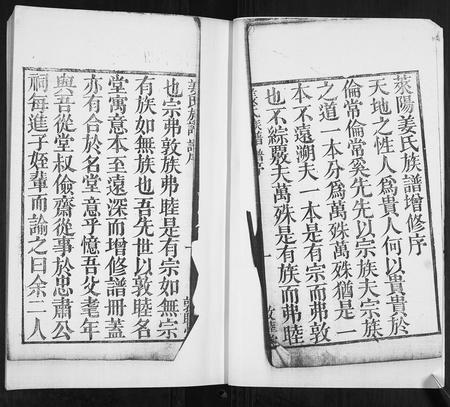 萊陽姜氏族譜增修序
天地之性人為貴人何以貴貴於
倫常倫常奚先先以宗族夫宗族
之道一本分為萬殊萬殊猶是一
本不遠溯夫一本是有宗而弗敦
也不綜覈夫萬殊是有族而弗睦
姜氏族譜 譜序
一
敦睦堂
姜氏族譜 譜序
敦睦
也宗弗敦族弗睦是有宗如無宗
有族如無族也吾先世以敦睦名
堂寓意本至遠深而增修譜冊蓋
亦有合於名堂之意乎憶吾父耄年
與吾從堂叔儉齋從事於忠肅公
祠每進子姪輩而諭之曰余二人